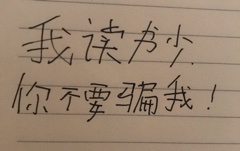 我读书少,
你不要骗我!